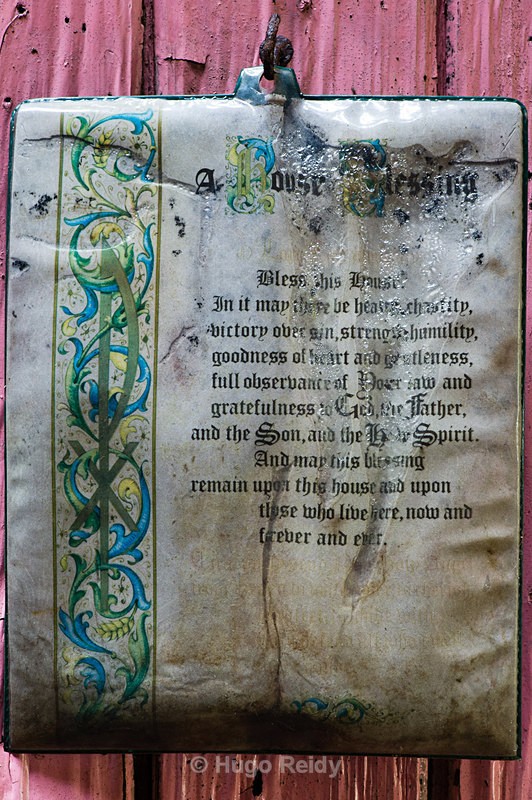 A House Blessing
Bless this House.
In it may there be health, chastity,
victory over sin, strength, humility,
goodness of heart and gentleness,
full observance of Your law and
gratefulness to God, the Father,
and the Son, and the Holy Spirit.
And may this blessing
remain upon this house and upon
those who live here, now and
forever and ever.
© Hugo Reidy